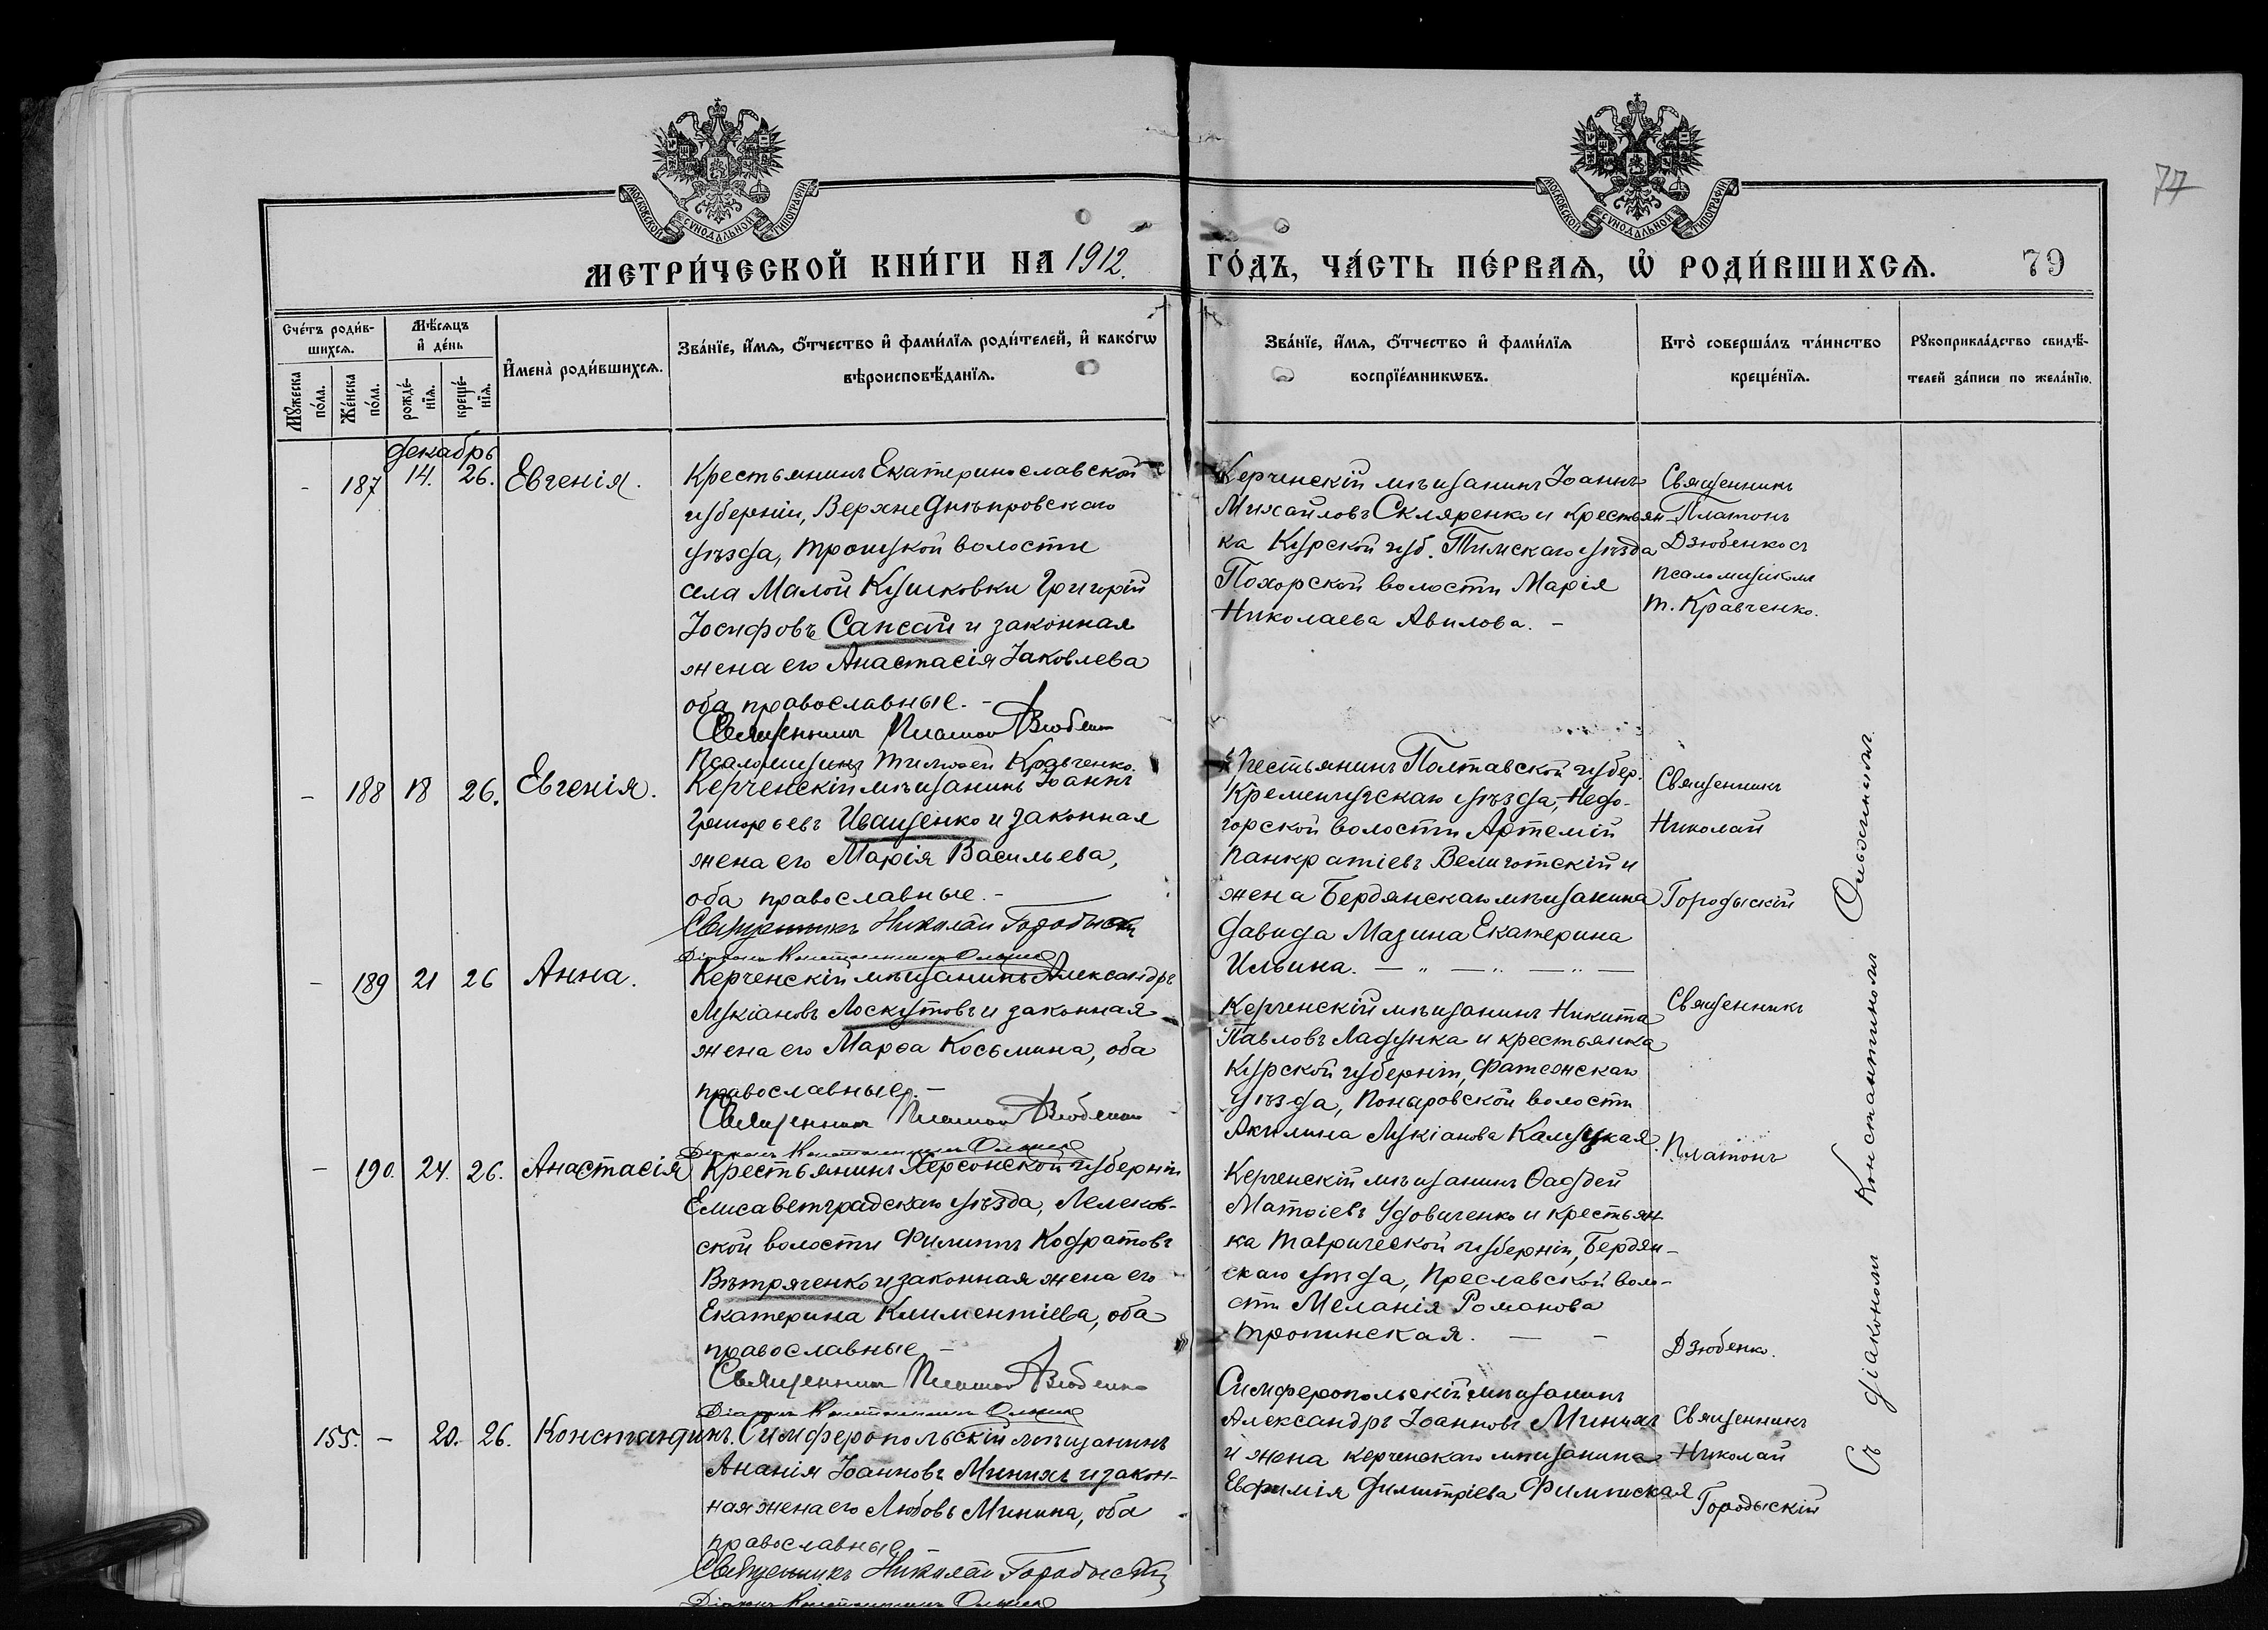 77
МОСКОВСКОЙ СУНОДАЛЬНОЙ ТИПОГРАФІИ
МОСКОВСКОЙ СУНОДАЛЬНОЙ ТИПОГРАФІИ
МЕТРИ́ЧЕСКОЙ КНИ́ГИ НА 1912. ГО́ДЪ, ЧА́СТЬ ПЕ́РВАѦ, Ѡ҆ РОДИ́ВШИХСѦ. 79
Сче́тъ роди́в-
шихсѧ.
Мꙋ́жеска
по́ла.
Же́нска
по́ла.
Мѣ́сѧцъ
и҆ де́нь
рожде́-
нїѧ.
креще́-
нїѧ.
И҆мена̀ роди́вшихсѧ.
Зва́нїе, и҆́мѧ, ѻ҆́тчество и҆ фами́лїѧ роди́телей, и҆ како́гѡ
вѣроисповѣ́данїѧ.
Зва́нїе, и҆́мѧ, ѻ҆́тчество и҆ фами́лїѧ
воспрїе́мникѡвъ.
Кто̀ соверша́лъ та́инство
креще́нїѧ.
Рꙋкоприкла́дство свидѣ́-
телей за́писи по жела́нїю.
декабрь
- 187 14. 26. Евгенія.
Крестьянинъ Екатеринославской
губерніи, Верхнеднѣпровскаго
уѣзда, Троицкой волости
села Малой Кушковки Григорій
Іосифовъ Сапсай и законная
жена его Анастасія Іаковлева
оба православные. -
Священникъ Платон Дзюбенко
Псаломщикъ Тимофей Кравченко.
Керченскій мѣщанинъ Іоаннъ
Михайловъ Скляренко и крестьян-
ка Курской губ. Тимскаго уѣзда
Похорской волости Марія
Николаева Авилова. -
Священникъ
Платонъ
Дзюбенко съ
псаломщикомъ
Т. Кравченко.
- 188 18 26. Евгенія.
Керченскій мѣщанинъ Іоаннъ
Григорьевъ Иващенко и законная
жена его Марія Васильева,
оба православные. -
Священникъ Николай Городыскій
Діаконъ Константинъ
Крестьянинъ Полтавской губер.
Кременчугскаго уѣзда, Недо-
горской волости Артемій
Панкратіевъ Величтскій и
жена Бердянскаго мѣщанина
Давида Мазина Екатерина
Ильина. — „ — „ — „ —
Священникъ
Николай
Городыскій
- 189 21 26 Анна.
Керченскій мѣщанинъ Александръ
Лукіановъ Лоскутовъ и законная
жена его Марѳа Косьмина, оба
православные. -
Священникъ Платон Дзюбенко
Діаконъ Константинъ
Керченскій мѣщанинъ Никита
Павловъ Ладунка и крестьянка
Курской губерніи, Фатежскаго
уѣзда, Понаровской волости
Акилина Лукіанова Калуцкая.
Священникъ
Платонъ
Дзюбенко.
- 190. 24. 26. Анастасія
Крестьянинъ Херсонской губерніи
Елисаветградскаго уѣзда, Лелеков-
ской волости Филиппъ Кодратовъ
Вѣтряченко и законная жена его
Екатерина Климентіева, оба
православные -
Священникъ Платон Дзюбенко
Діаконъ Константинъ
Керченскій мѣщанинъ Ѳаддей
Матѳіевъ Удовиченко и крестьян-
ка Таврической губерніи, Бердян-
скаго уѣзда, Преславской воло-
сти Меланія Романова
Тропинская. — -
155. - 20. 26. Константинъ.
Симферопольскій мѣщанинъ
Ананія Іоанновъ Минихъ и закон-
ная жена его Любовь Минина, оба
православные
Священникъ Николай Городыскій
Діаконъ Константинъ
Симферопольскій мѣщанинъ
Александръ Іоанновъ Минихъ
и жена керченскаго мѣщанина
Евфимія Димитріева
Священникъ
Николай
Городыскій
Съ діакономъ Константиномъ